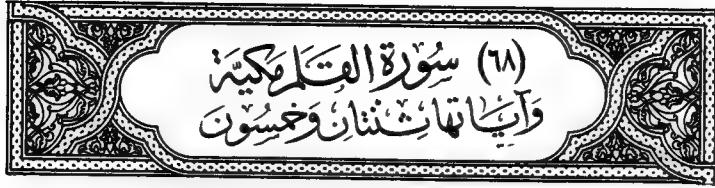 (٦٨) سُورَة القَلَم مَكيَّة
وَآيَاتهَا ثنتَان وَخَمسُون